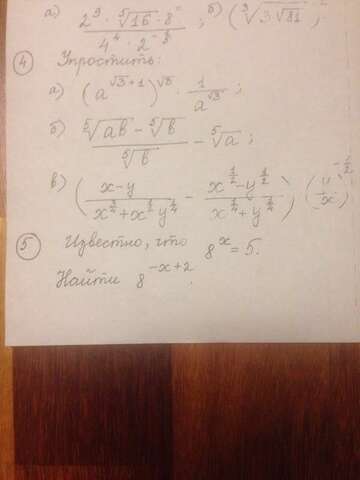 а) (2^9 · ⁵√16 · 8) / (4^4 · 2^-3) ; б) (³√(3√81)
④ Упростить:
а) (a^(√3+1))^√3 · 1/a^√3 ;
б) (⁵√(ab) − ⁵√b) / ⁵√b − ⁵√a ;
в) ((x−y)/(x^(3/4)+x^(1/2)y^(1/4)) − (x^(1/2)−y^(1/2))/(x^(1/4)+y^(1/4))) (y/x)^(-1/2)
⑤ Известно, что 8^x = 5.
Найти 8^(−x+2).